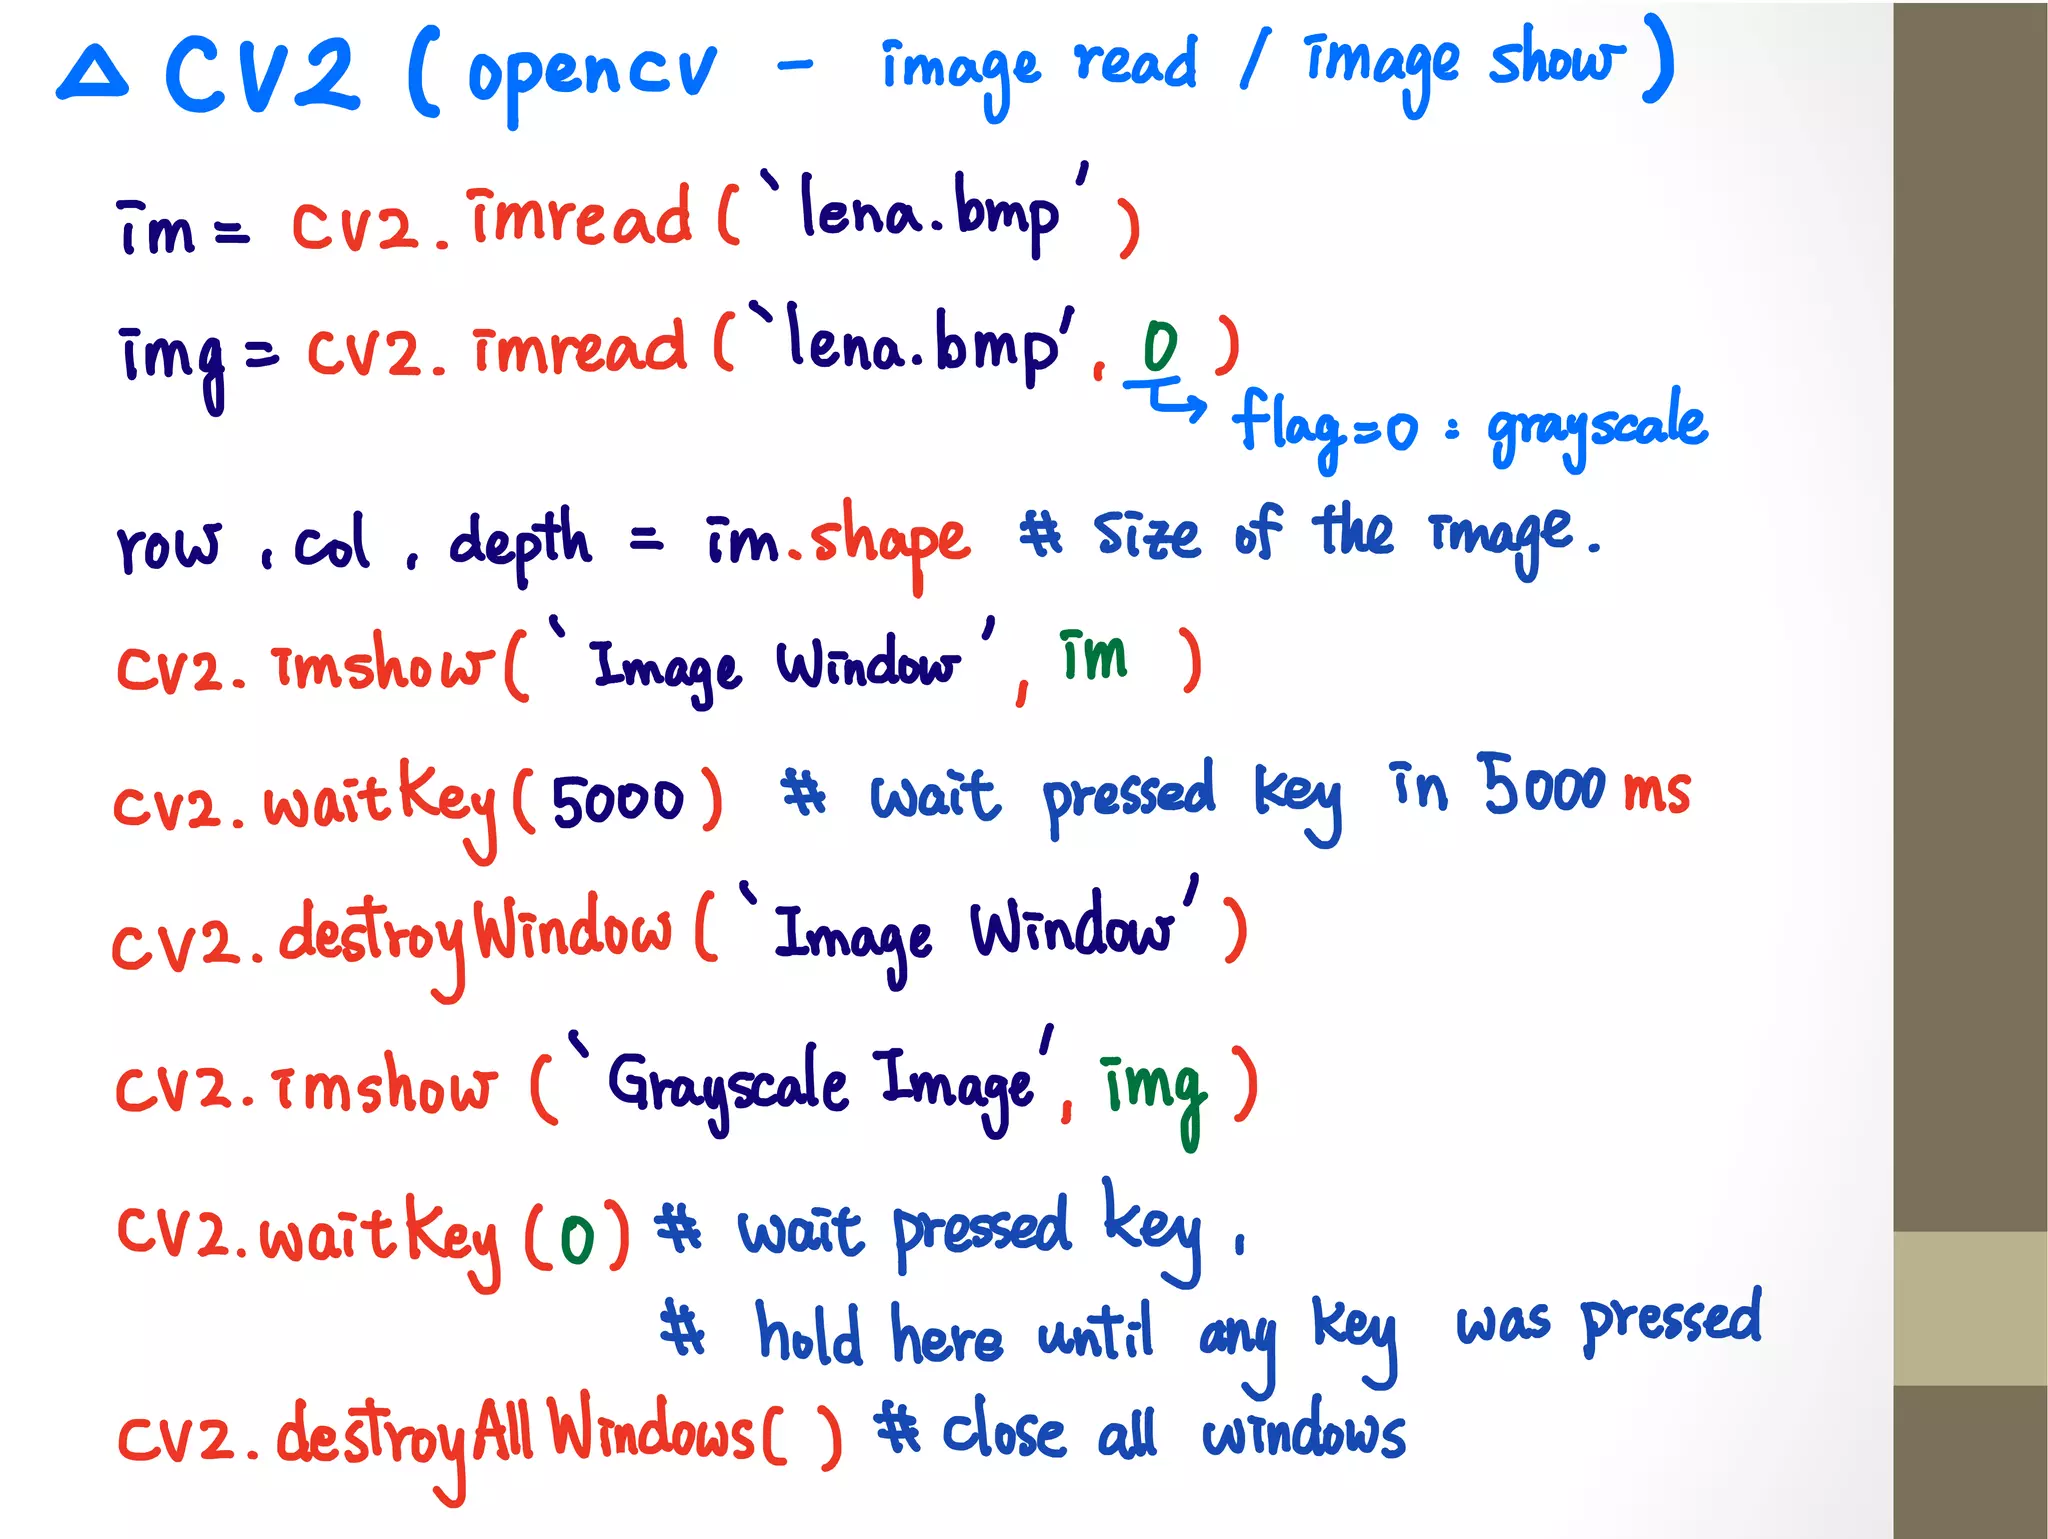 △ CV2 ( opencv - image read / image show )
im = cv2. imread ( `lena.bmp' )
img = cv2. imread ( `lena.bmp', 0 )
flag=0 : grayscale
row , col , depth = im.shape # size of the image.
cv2. imshow( `Image Window', im )
cv2. waitKey( 5000 ) # wait pressed key in 5000 ms
cv2. destroyWindow ( `Image Window' )
cv2. imshow ( `Grayscale Image', img )
cv2. waitKey ( 0 ) # wait pressed key ,
# hold here until any key was pressed
cv2. destroyAllWindows( ) # close all windows